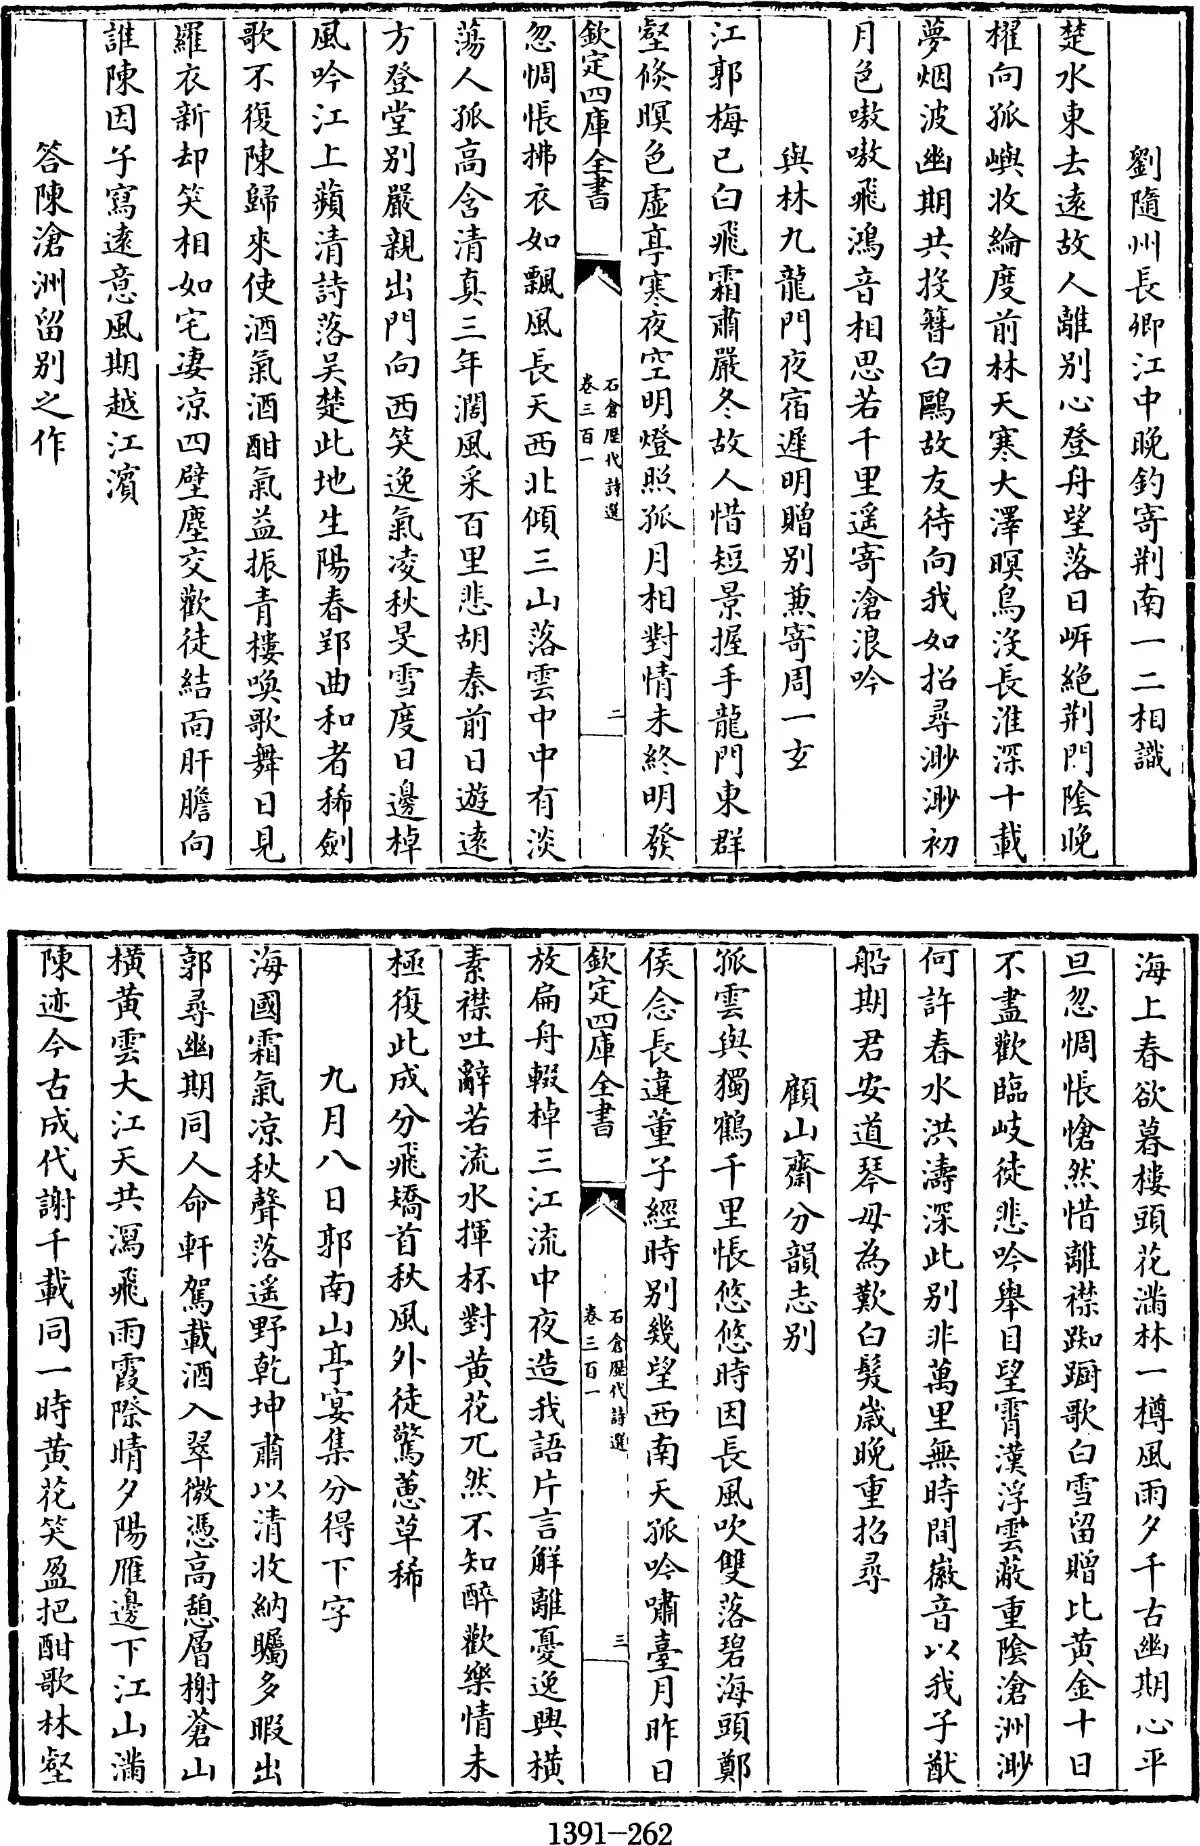 劉隨州長卿江中晚釣寄荆南一二相識
楚水東去遠故人離别心登舟望落日岍絶荆門陰晚
櫂向孤嶼收綸度前林天寒大澤暝鳥沒長淮深十載
夢烟波幽期共投簪白鷗故友待向我如招尋渺渺初
月色嗷嗷飛鴻音相思若千里遥寄滄浪吟
與林九龍門夜宿遲明贈别兼寄周一玄
江郭梅已白飛霜肅嚴冬故人惜短景握手龍門東群
壑倏暝色虚亭寒夜空明燈照孤月相對情未終明發
欽定四庫全書
石倉歷代詩選
卷三百一
二
忽惆悵拂衣如飄風長天西北傾三山落雲中中有淡
蕩人孤高含清真三年濶風采百里悲胡秦前日遊逺
方登堂别嚴親出門向西笑逸氣凌秋旻雪度日邊棹
風吟江上蘋清詩落吴楚此地生陽春郢曲和者稀劍
歌不復陳歸來使酒氣酒酣氣益振青樓喚歌舞日見
羅衣新却笑相如宅凄凉四壁塵交歡徒結靣肝膽向
誰陳因子寫逺意風期越江濱
答陳滄洲留别之作
海上春欲暮樓頭花滿林一樽風雨夕千古幽期心平
旦忽惆悵愴然惜離襟踟蹰歌白雪留贈比黄金十日
不盡歡臨岐徒悲吟舉目望霄漢浮雲蔽重陰滄洲渺
何許春水洪濤深此别非萬里無時間徽音以我子猷
船期君安道琴毋為歎白髮嵗晚重招尋
顧山齋分韻志别
孤雲與獨鶴千里悵悠悠時因長風吹雙落碧海頭鄭
侯念長違董子經時别幾望西南天孤吟嘯臺月昨日
欽定四庫全書
石倉歷代詩選
卷三百一
三
放扁舟輟棹三江流中夜造我語片言解離憂逸興橫
素襟吐辭若流水揮杯對黄花兀然不知醉歡樂情未
極復此成分飛矯首秋風外徒驚蕙草稀
九月八日郭南山亭宴集分得下字
海國霜氣凉秋聲落遥野乾坤肅以清收納矚多暇出
郭尋幽期同人命軒駕載酒入翠微憑高憩層榭蒼山
橫黄雲大江天共瀉飛雨霞際晴夕陽雁邊下江山滿
陳迹今古成代謝千載同一時黄花笑盈把酣歌林壑
1391-262